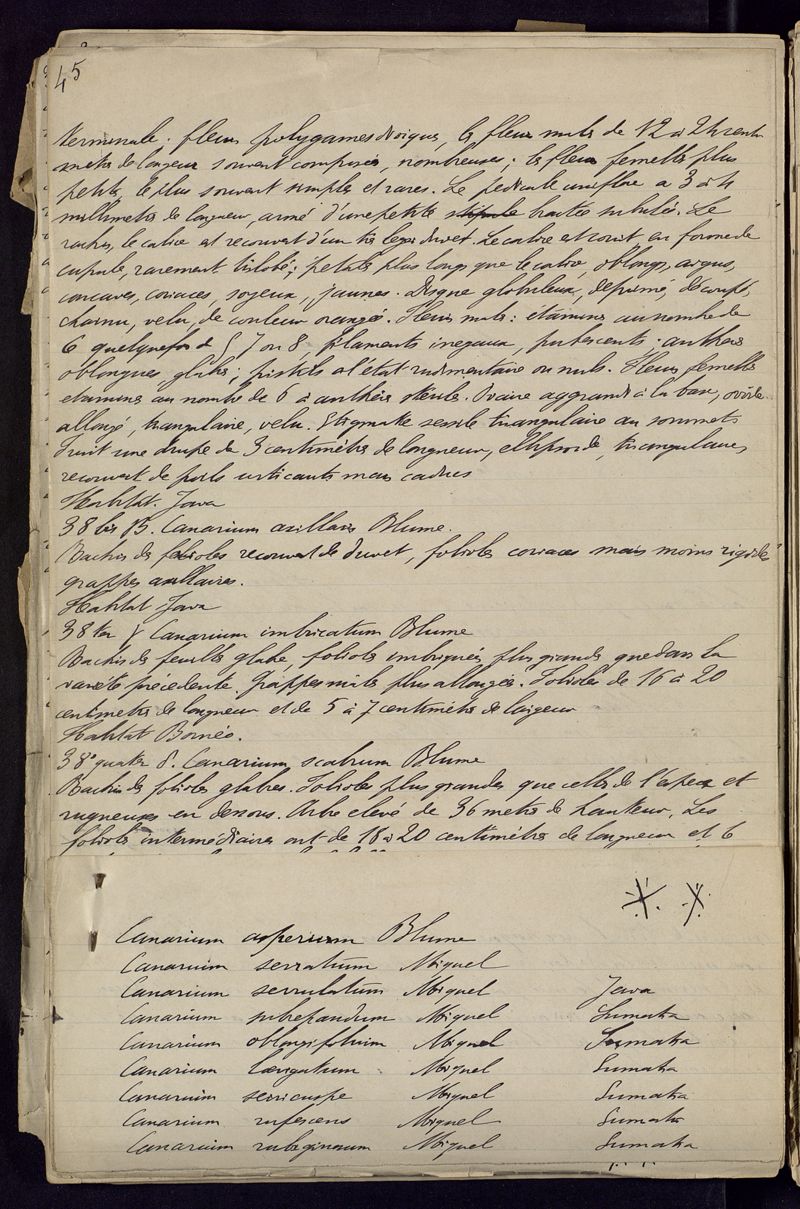 45
terminale. fleurs polygames dioiques, les fleurs males de 12 à 24 centi
mètres de longueur souvent composées, nombreuses; les fleurs femelles plus
petites, le plus souvent simples et rares. Le pédicule uniflore a 3 à 4
millimètres de longueur, armé d'une petite stipule bractée subulée. Le
rachis, le calice est recouvert d'un tres leger duvet. Le calice est court en forme de
cupule, rarement trilobé; petales plus longs que le calice, oblongs, aigus,
concaves, coriaces, soyeux, jaunes. Disque globuleux, deprimé, découpé,
charnu, velu, de couleur orangé. Fleurs males: etamines au nombre de
6 quelquefois 7 ou 8, filaments inegaux, pubescents; anthères
oblongues glabres; pistils a l'état rudimentaire ou nuls. Fleurs femelles
etamines au nombre de 6 à anthères stériles. Ovaire aggrandi à la base, ovoide
allongé, triangulaire, velu. Stigmate sessile triangulaire au sommet
Fruit une drupe de 3 centimètres de longueur, ellipsoide, triangulaire,
recouvert de poils urticants mais caducs
Habitat. Java
38 bis β. Canarium axillare Blume.
Rachis des folioles recouvert de duvet, folioles coriaces mais moins rigides
grappes axillaires.
Habitat Java
38 ter γ Canarium imbricatum Blume
Rachis des feuilles glabre, folioles imbriquées, plus grandes que dans la
varieté précedente. Grappes males plus allongées. Folioles de 16 à 20
centimètres de longueur et de 5 à 7 centimètres de largeur
Habitat Bornéo.
38 quater δ. Canarium scabrum Blume
Rachis des folioles glabres. Folioles plus grandes que celles de l'espece et
rugueuses en dessous. Arbre elevé de 36 metres de hauteur. Les
folioles intermédiaires ont de 18 à 20 centimètres de longueur et 6
Canarium asperum Blume
Canarium serratum Miquel
Canarium serrulatum Miquel Java
Canarium subrepandum Miquel Sumatra
Canarium oblongifolium Miquel Sumatra
Canarium laevigatum Miquel Sumatra
Canarium serricuspe Miquel Sumatra
Canarium rufescens Miquel Sumatra
Canarium rubiginosum Miquel Sumatra